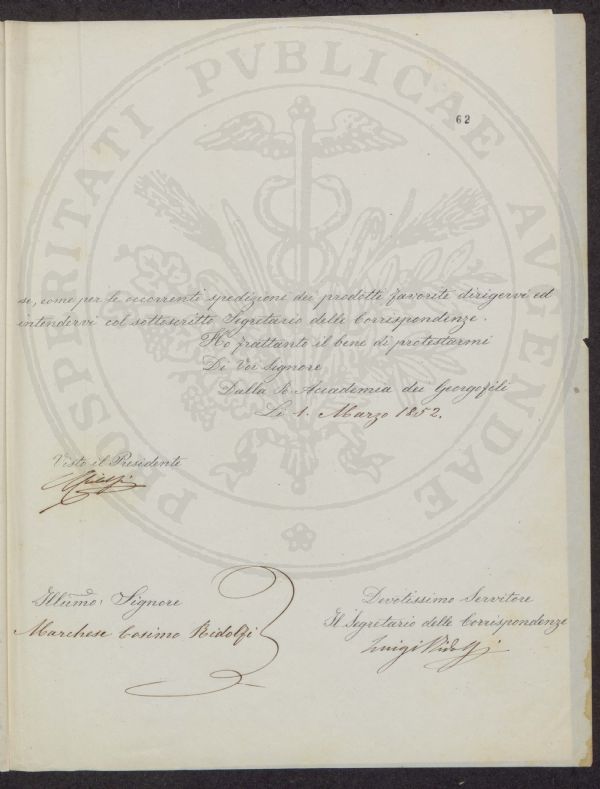 62
se, come per le occorrenti spedizioni dei prodotti favorite dirigervi ed
intendervi col sottoscritto Segretario delle Corrispondenze.
Ho frattanto il bene di protestarmi
Di Voi Signore
Dalla R. Accademia dei Georgofili
Li 1. Marzo 1852.
Visto il Presidente
CRidolfi
Illumo: Signore
Marchese Cosimo Ridolfi
Devotissimo Servitore
Il Segretario delle Corrispondenze
Luigi Ridolfi
PROSPERITATI PVBLICAE AVGENDAE